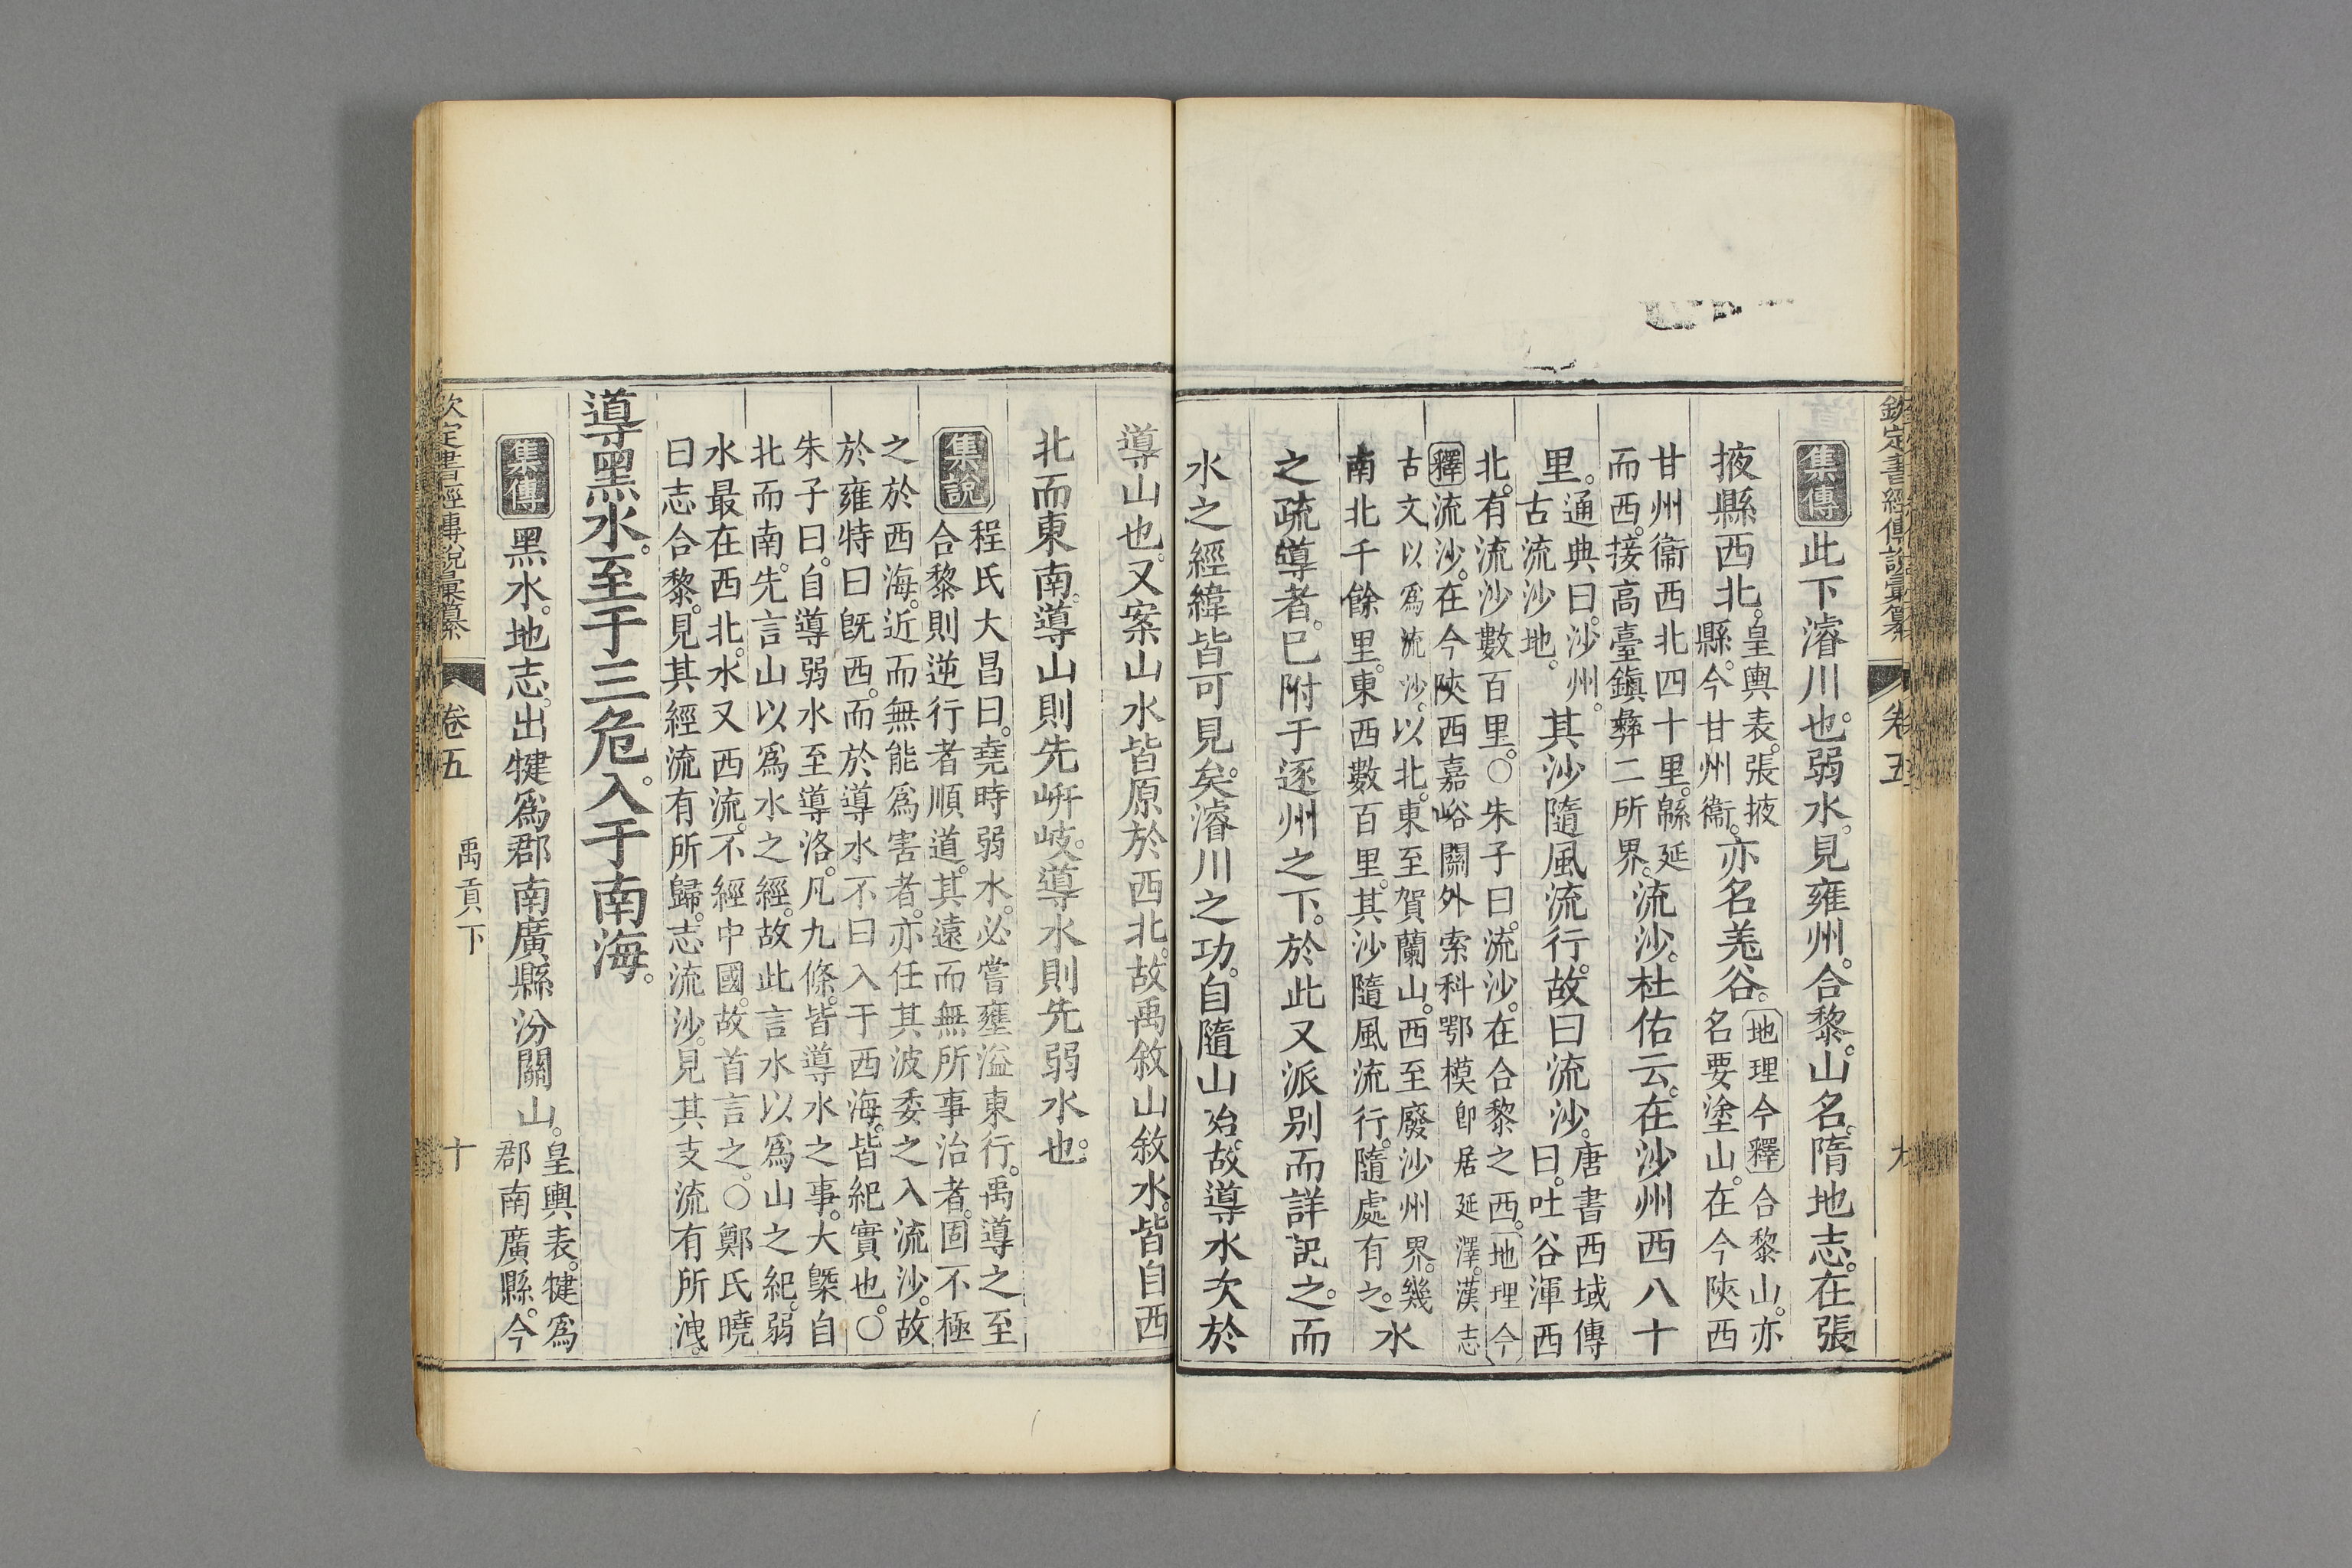 欽定書經傳說彙纂 卷五 九
集傳 此下濬川也。弱水。見雍州。合黎。山名。隋地志。在張
掖縣西北。皇輿表。張掖縣。今甘州衞。亦名羌谷。地理今釋 合黎山。亦名要塗山。在今陝西
甘州衞西北四十里。緜延而西。接高臺鎭彝二所界。流沙。杜佑云。在沙州西八十
里。通典曰。沙州。古流沙地。其沙隨風流行。故曰流沙。唐書西域傳曰。吐谷渾西
北。有流沙數百里。○朱子曰。流沙。在合黎之西。地理今釋 流沙。在今陝西嘉峪關外索科鄂模卽居延澤。漢志
古文以爲流沙。以北。東至賀蘭山。西至廢沙州界。幾南北千餘里。東西數百里。其沙隨風流行。隨處有之。水
之疏導者。已附于逐州之下。於此又派别而詳記之。而
水之經緯皆可見矣。濬川之功。自隨山始。故導水次於
導山也。又案山水皆原於西北。故禹敘山敘水。皆自西
北而東南。導山則先岍岐。導水則先弱水也。
集說 程氏大昌曰。堯時弱水。必嘗壅溢東行。禹導之至合黎則逆行者順道。其遠而無所事治者。固不極
之於西海。近而無能爲害者。亦任其波委之入流沙。故於雍特曰旣西。而於導水不曰入于西海。皆紀實也。○
朱子曰。自導弱水至導洛。凡九條。皆導水之事。大槩自北而南。先言山以爲水之經。故此言水以爲山之紀。弱
水最在西北。水又西流。不經中國。故首言之。○鄭氏曉曰志合黎。見其經流有所歸。志流沙。見其支流有所洩。
導黑水。至于三危。入于南海。
集傳 黑水。地志。出犍爲郡南廣縣汾關山。皇輿表。犍爲郡南廣縣。今
欽定書經傳說彙纂 卷五 禹貢下 十